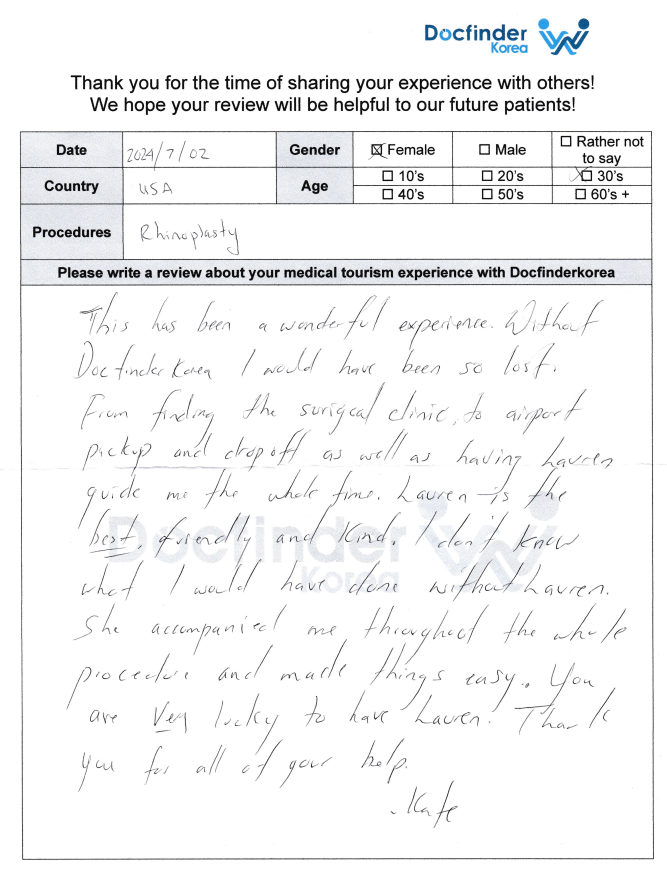 Docfinder
Korea
Thank you for the time of sharing your experience with others!
We hope your review will be helpful to our future patients!
Date 2024/7/02 Gender ☒ Female ☐ Male ☐ Rather not to say
Country USA Age ☐ 10's ☐ 20's ☒ 30's
☐ 40's ☐ 50's ☐ 60's +
Procedures Rhinoplasty
Please write a review about your medical tourism experience with Docfinderkorea
This has been a wonderful experience. Without
Docfinder Korea I would have been so lost.
From finding the surigcal clinic, to airport
pickup and dropoff as well as having Lauren
guide me the whole time. Lauren is the
best, friendly and kind. I don't know
what I would have done without Lauren.
She accompanied me throughout the whole
procedure and made things easy. You
are very lucky to have Lauren! Thank
you for all of your help.
- Kate
Docfinder
Korea